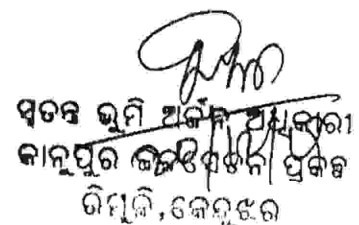 ସ୍ୱତନ୍ତ୍ର ଭୂମି ଅର୍ଜନ ଅଧିକାରୀ
କାନୁପୁର ଜଳସେଚନ ପ୍ରକଳ୍ପ
ଡିମୁଳି, କେନ୍ଦୁଝର